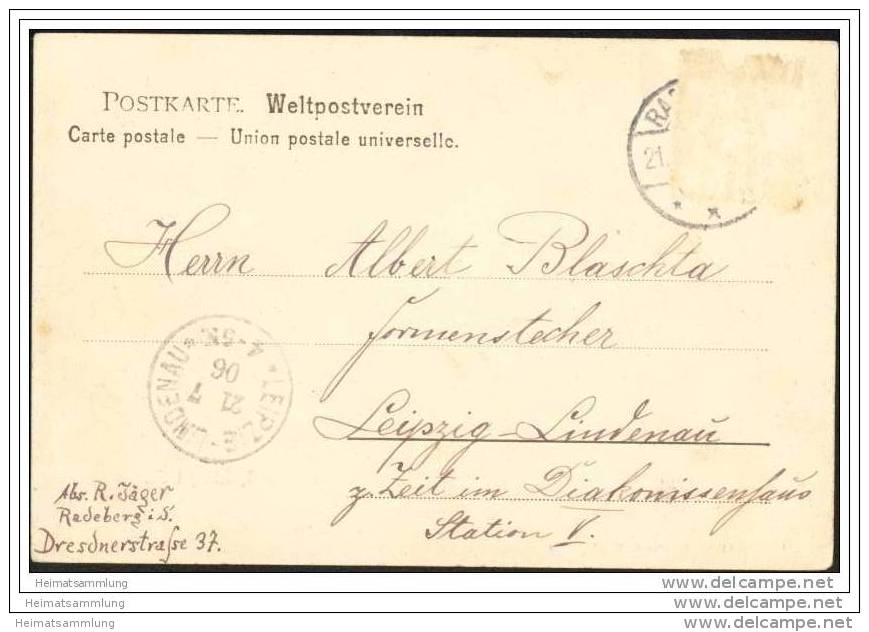 POSTKARTE. Weltpostverein
Carte postale — Union postale universelle.
RA
21.
Herrn Albert Blaschta
Formenstecher
Leipzig-Lindenau
z. Zeit im Diakonissenhaus
Station V.
*LEIPZIG-LINDENAU*
21 7
06
4-5N
Abs. R. Jäger
Radeberg i. S.
Dresdnerstraſse 37.
Heimatsammlung
Heimatsammlung
Heimatsammlung
www.delcampe.net
www.delcampe.net
www.delcampe.net